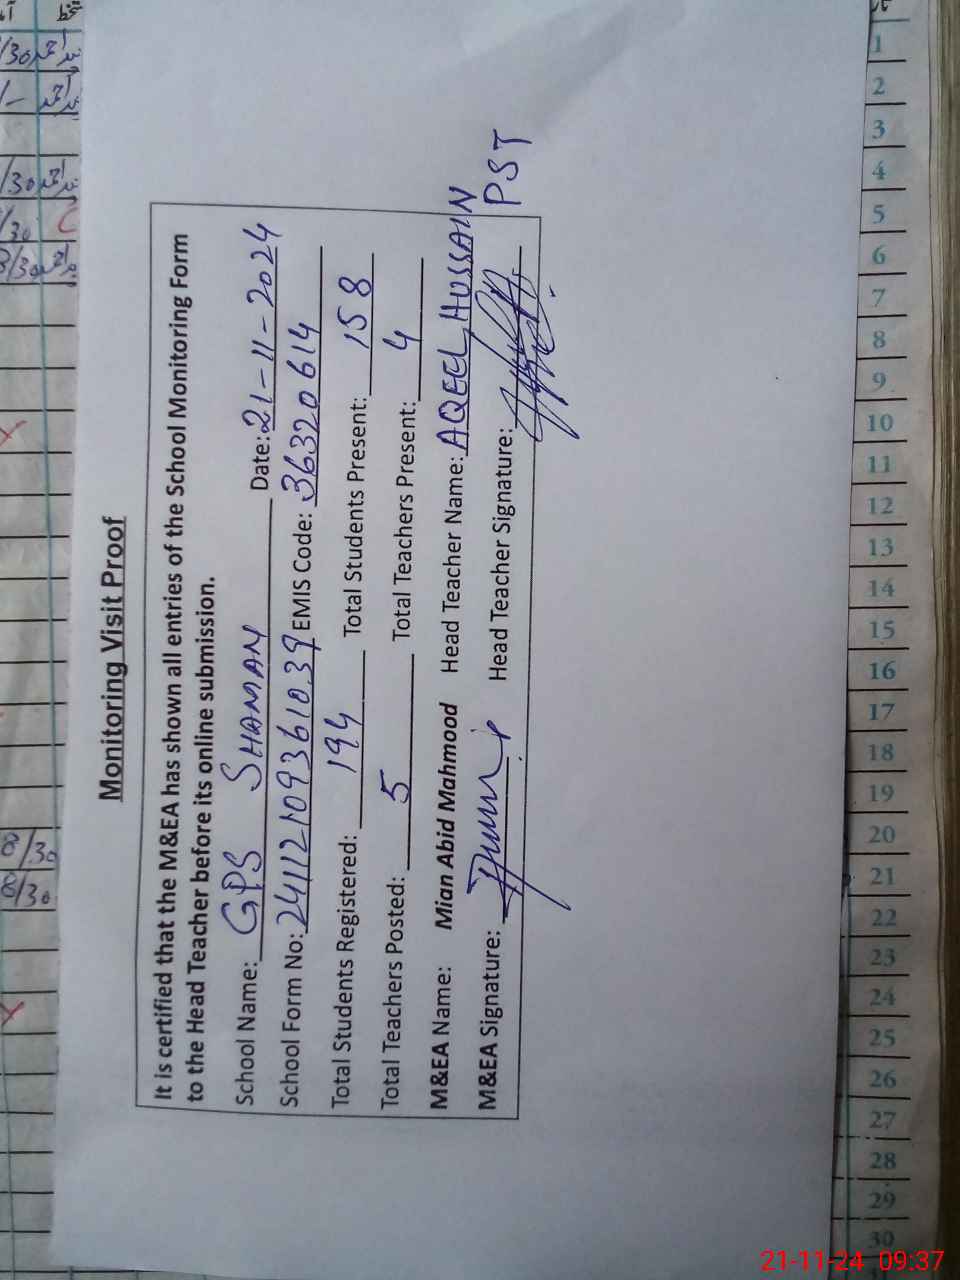 Monitoring Visit Proof
It is certified that the M&EA has shown all entries of the School Monitoring Form
to the Head Teacher before its online submission.
School Name: GPS SHAMAN Date: 21-11-2024
School Form No: 241112109361039 EMIS Code: 36320614
Total Students Registered: 194 Total Students Present: 158
Total Teachers Posted: 5 Total Teachers Present: 4
M&EA Name: Mian Abid Mahmood Head Teacher Name: AQEEL HUSSAIN
M&EA Signature: Head Teacher Signature: PST
1
2
3
4
5
6
7
8
9
10
11
12
13
14
15
16
17
18
19
20
21
22
23
24
25
26
27
28
29
30
8/30
8/30
21-11-24 09:37